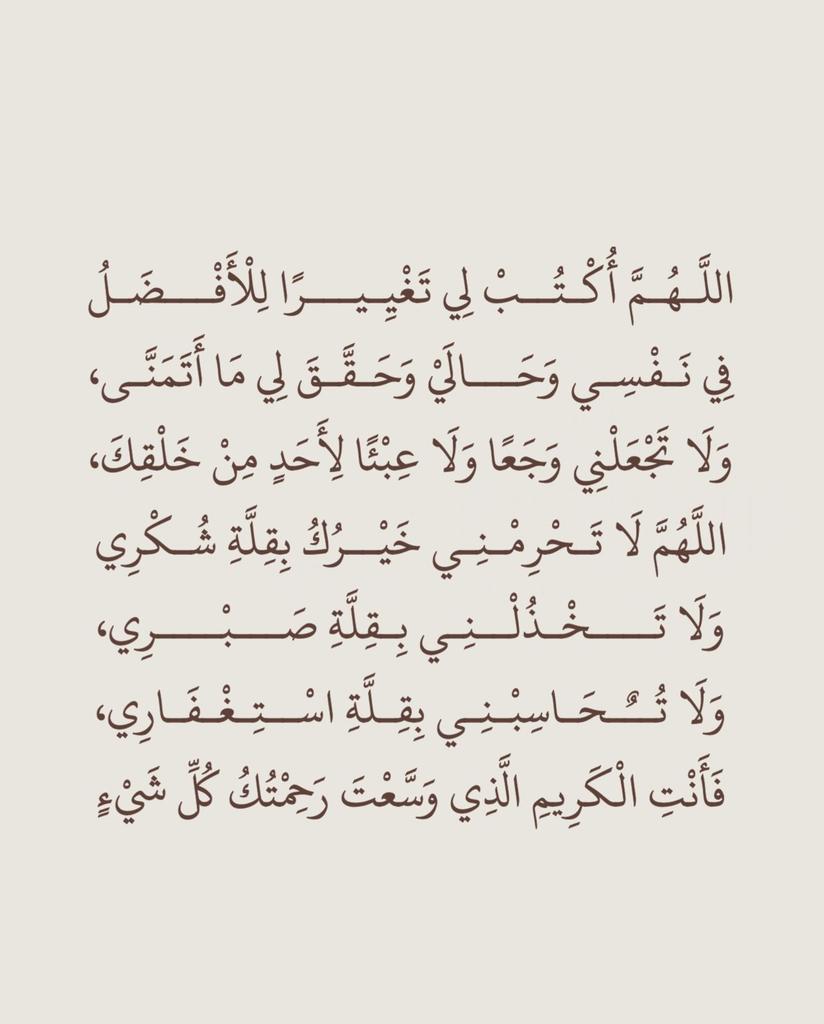 اللَّـهُـمَّ أُكْـتُـبْ لِي تَغْيِـيـرًا لِلْأَفْـضَـلُ
فِي نَـفْـسِـي وَحَـالَيْ وَحَـقَّـقَ لِي مَا أَتَمَنَّـى،
وَلَا تَجْعَلْنِي وَجَعًا وَلَا عِبْئًا لِأَحَدٍ مِنْ خَلْقِكَ،
اللَّهُمَّ لَا تَـحْرِمْـنِـي خَيْـرُكُ بِقِلَّةِ شُـكْرِي
وَلَا تَـخْـذُلْـنِـي بِـقِلَّةِ صَـبْـرِي،
وَلَا تُـحَـاسِبْـنِـي بِقِـلَّةِ اسْـتِـغْـفَـارِي،
فَأَنْتِ الْكَرِيمِ الَّذِي وَسَّعْتَ رَحِمْتُكُ كُلِّ شَيْءٍ